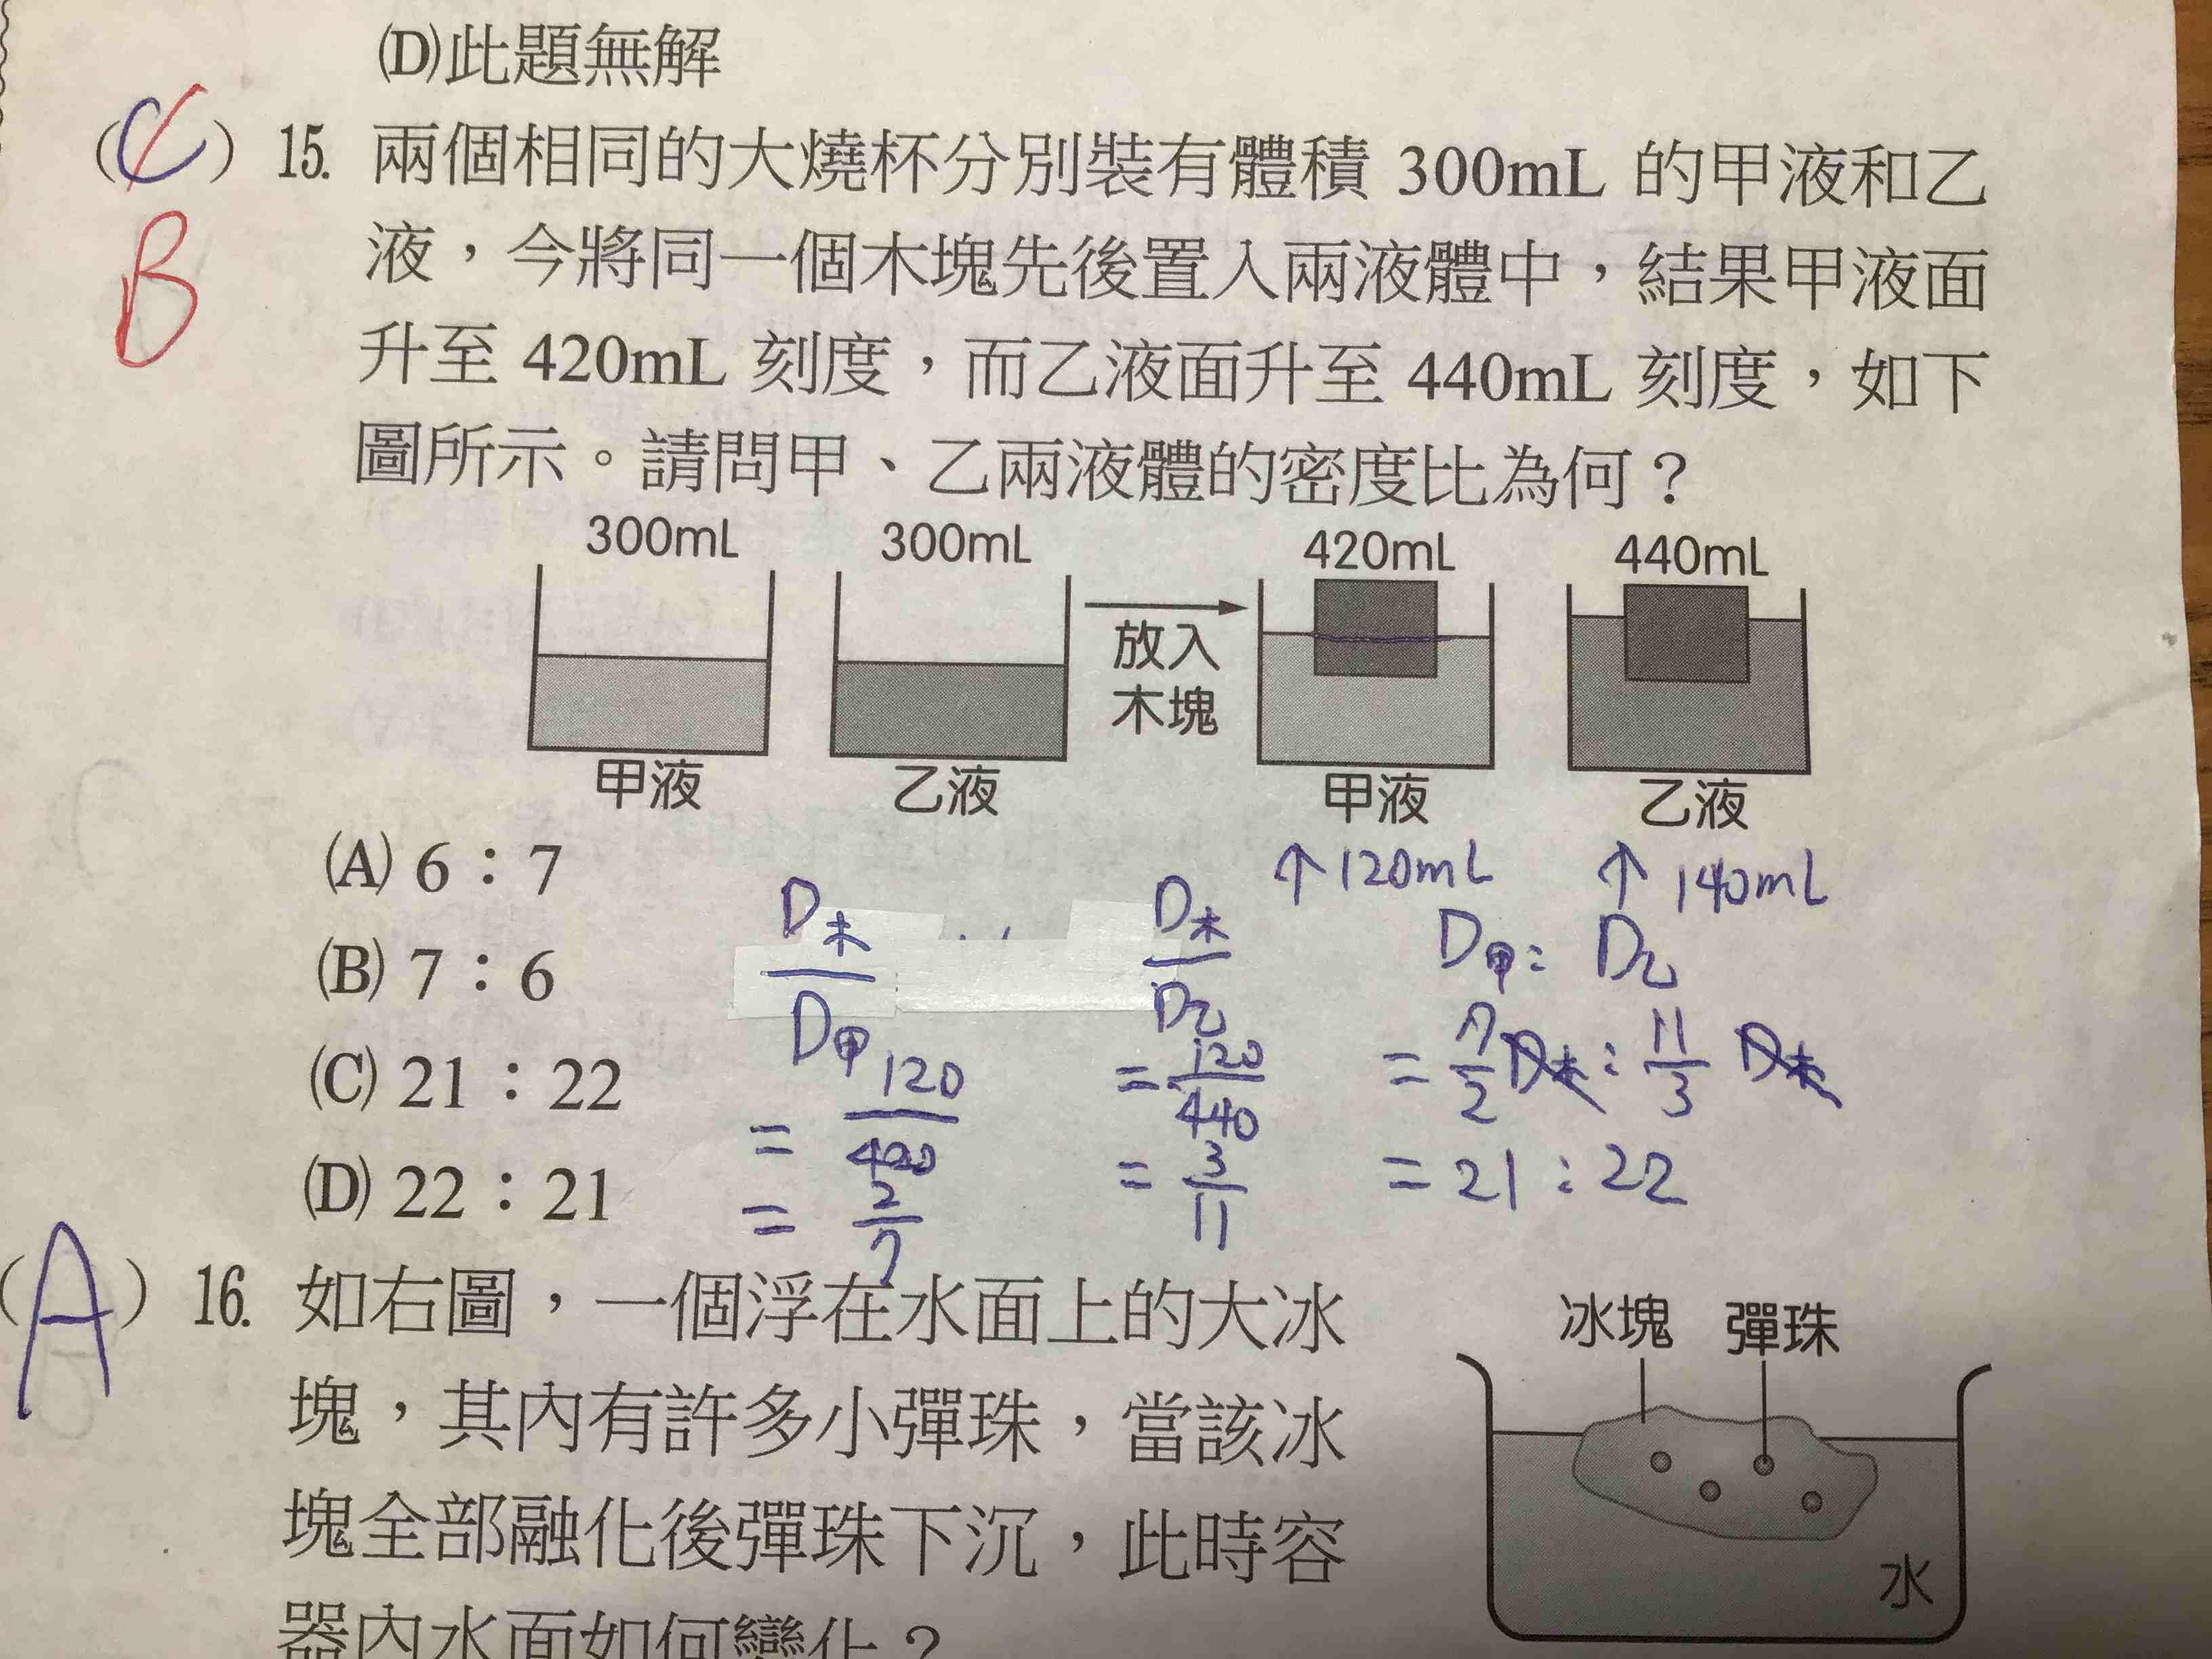 (D)此題無解
(C) 15. 兩個相同的大燒杯分別裝有體積 300mL 的甲液和乙
B
液，今將同一個木塊先後置入兩液體中，結果甲液面
升至 420mL 刻度，而乙液面升至 440mL 刻度，如下
圖所示。請問甲、乙兩液體的密度比為何？
300mL 300mL 420mL 440mL
放入
木塊
甲液 乙液 甲液 乙液
↑120mL ↑140mL
(A) 6：7
(B) 7：6
(C) 21：22
(D) 22：21
D木/D甲
= 120/420
= 2/7
D木/D乙
= 120/440
= 3/11
D甲: D乙
= 7/2 D木 : 11/3 D木
= 21 : 22
(A) 16. 如右圖，一個浮在水面上的大冰
塊，其內有許多小彈珠，當該冰
塊全部融化後彈珠下沉，此時容
器內水面如何變化？
冰塊 彈珠
水